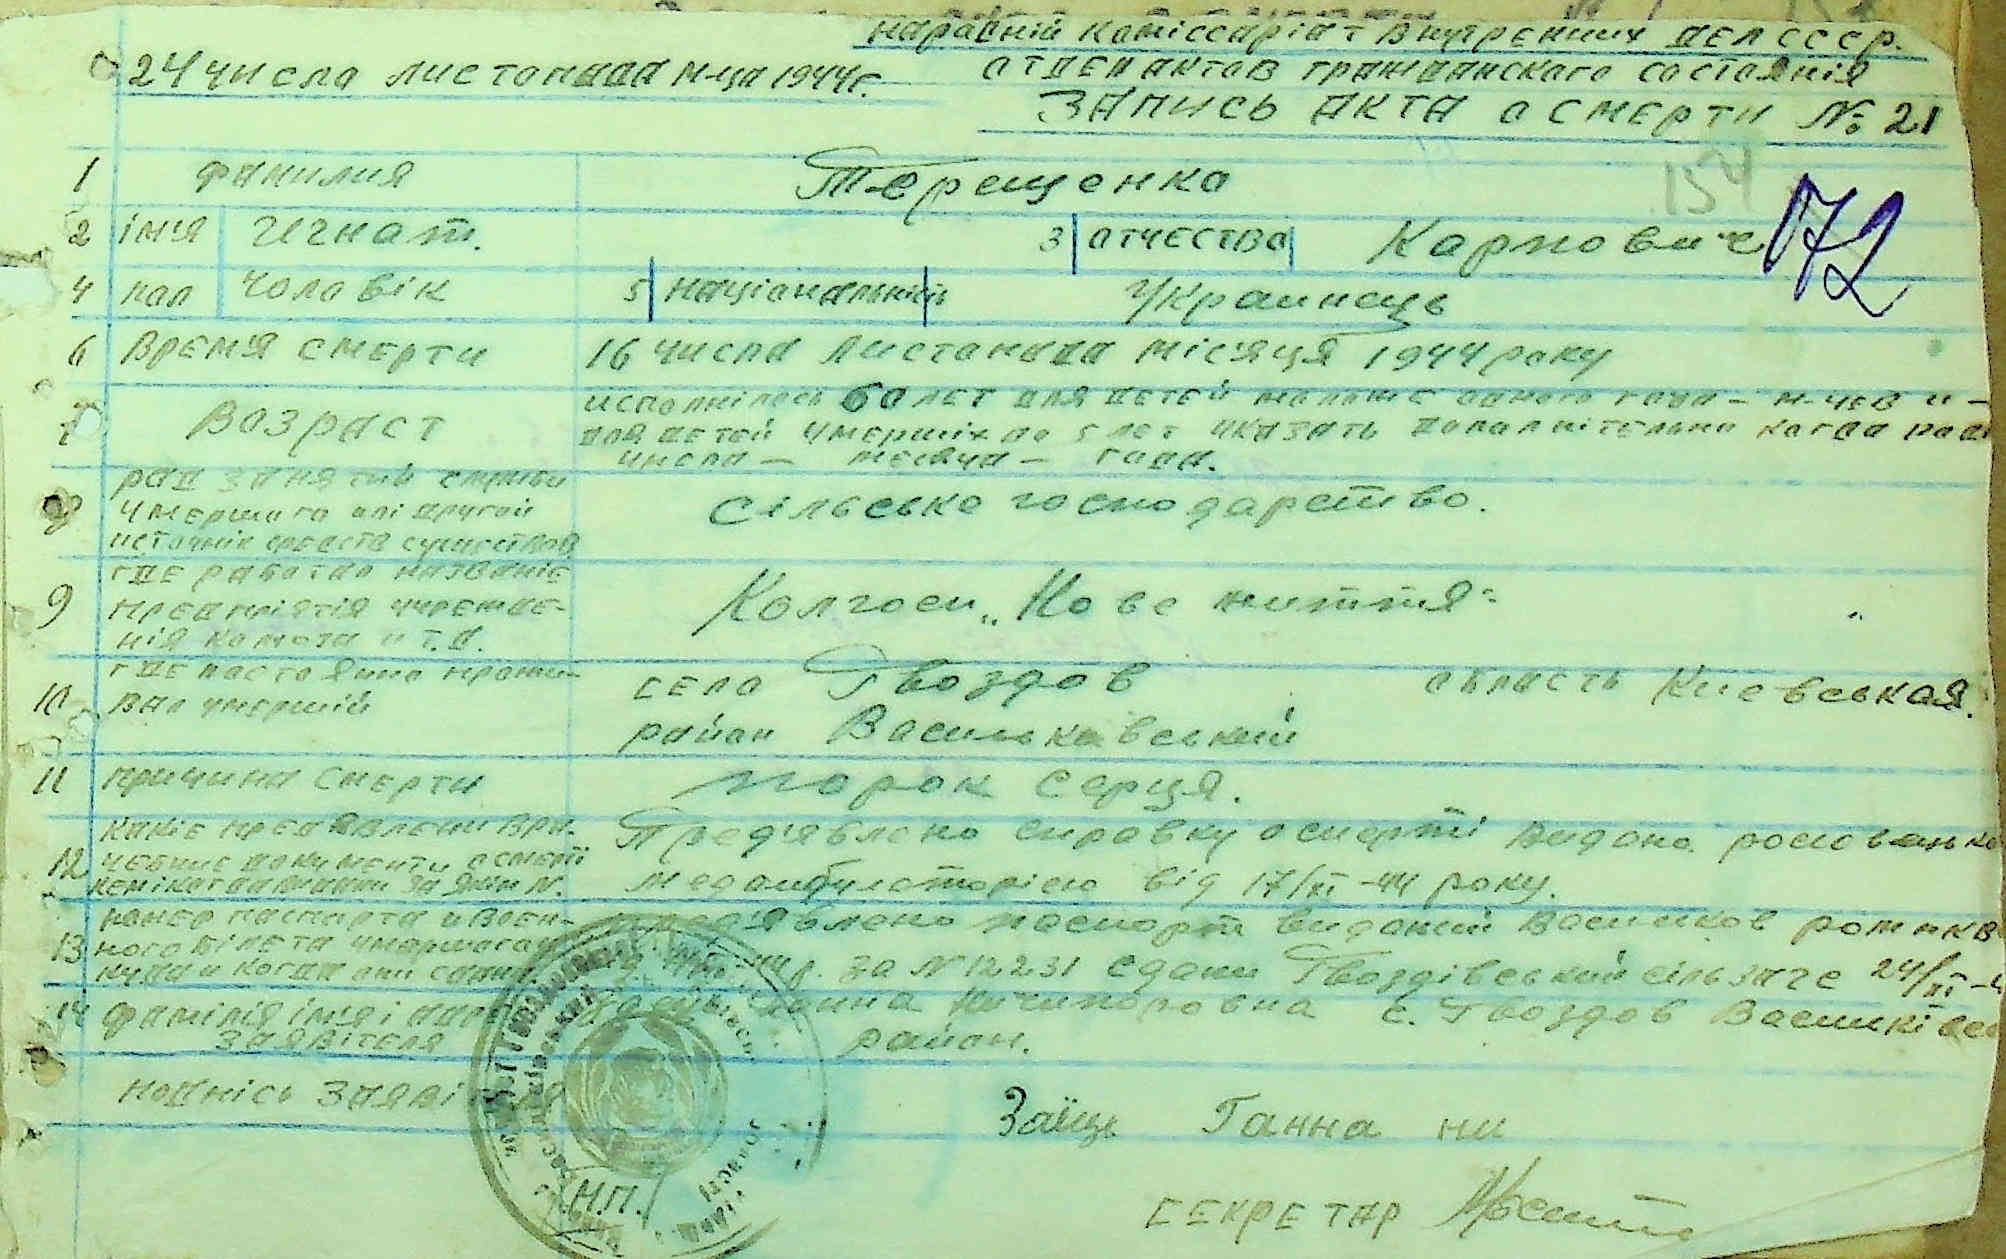 народній комісаріат внутренних дел СССР.
24 числа листопада м-ца 1944 г.
отдел актов гражданского состоянія
Запись акта о смерти № 21
154
72
1 фамилия Терещенко
2 імя Игнат. 3 отчество Карпович
4 пол чоловік 5 національній Украинець
6 Время смерти 16 числа листопада місяця 1944 року
7 Возраст исполнілось 60 лет для детей моложе одного года – м-цев и –
для детей умерших до 5 лет указать дополнітельно когда
числа – месяца – года.
8 род занятий служби
умершого олі другой
источнік средств существов
Сільське господарство.
9 где работал названіе
предпріятія учрежде-
нія колхоза и т.д.
Колгосп „Нове життя"
10 где постоянно прожи-
вал умерший
село Гвоздов область Киевськая.
район Васильковський
11 причина смерти порок серця.
12 какіе предявлени вра-
чебние документи о смерті
Предявлено справку о смерті видана
медамбулаторією від 17/XI–44 року.
13 номер паспорта и воен-
ного білета умершого
куда и когда они сдани
предявлено паспорт виданий Васильков
за № 12231 сдани Гвоздівський 24/XI
14 фамілія імя і
заявітеля
Ганна Ничипоровна с. Гвоздов
район.
подпісь заявітеля Заїць Ганна ни
М.П.
секретар